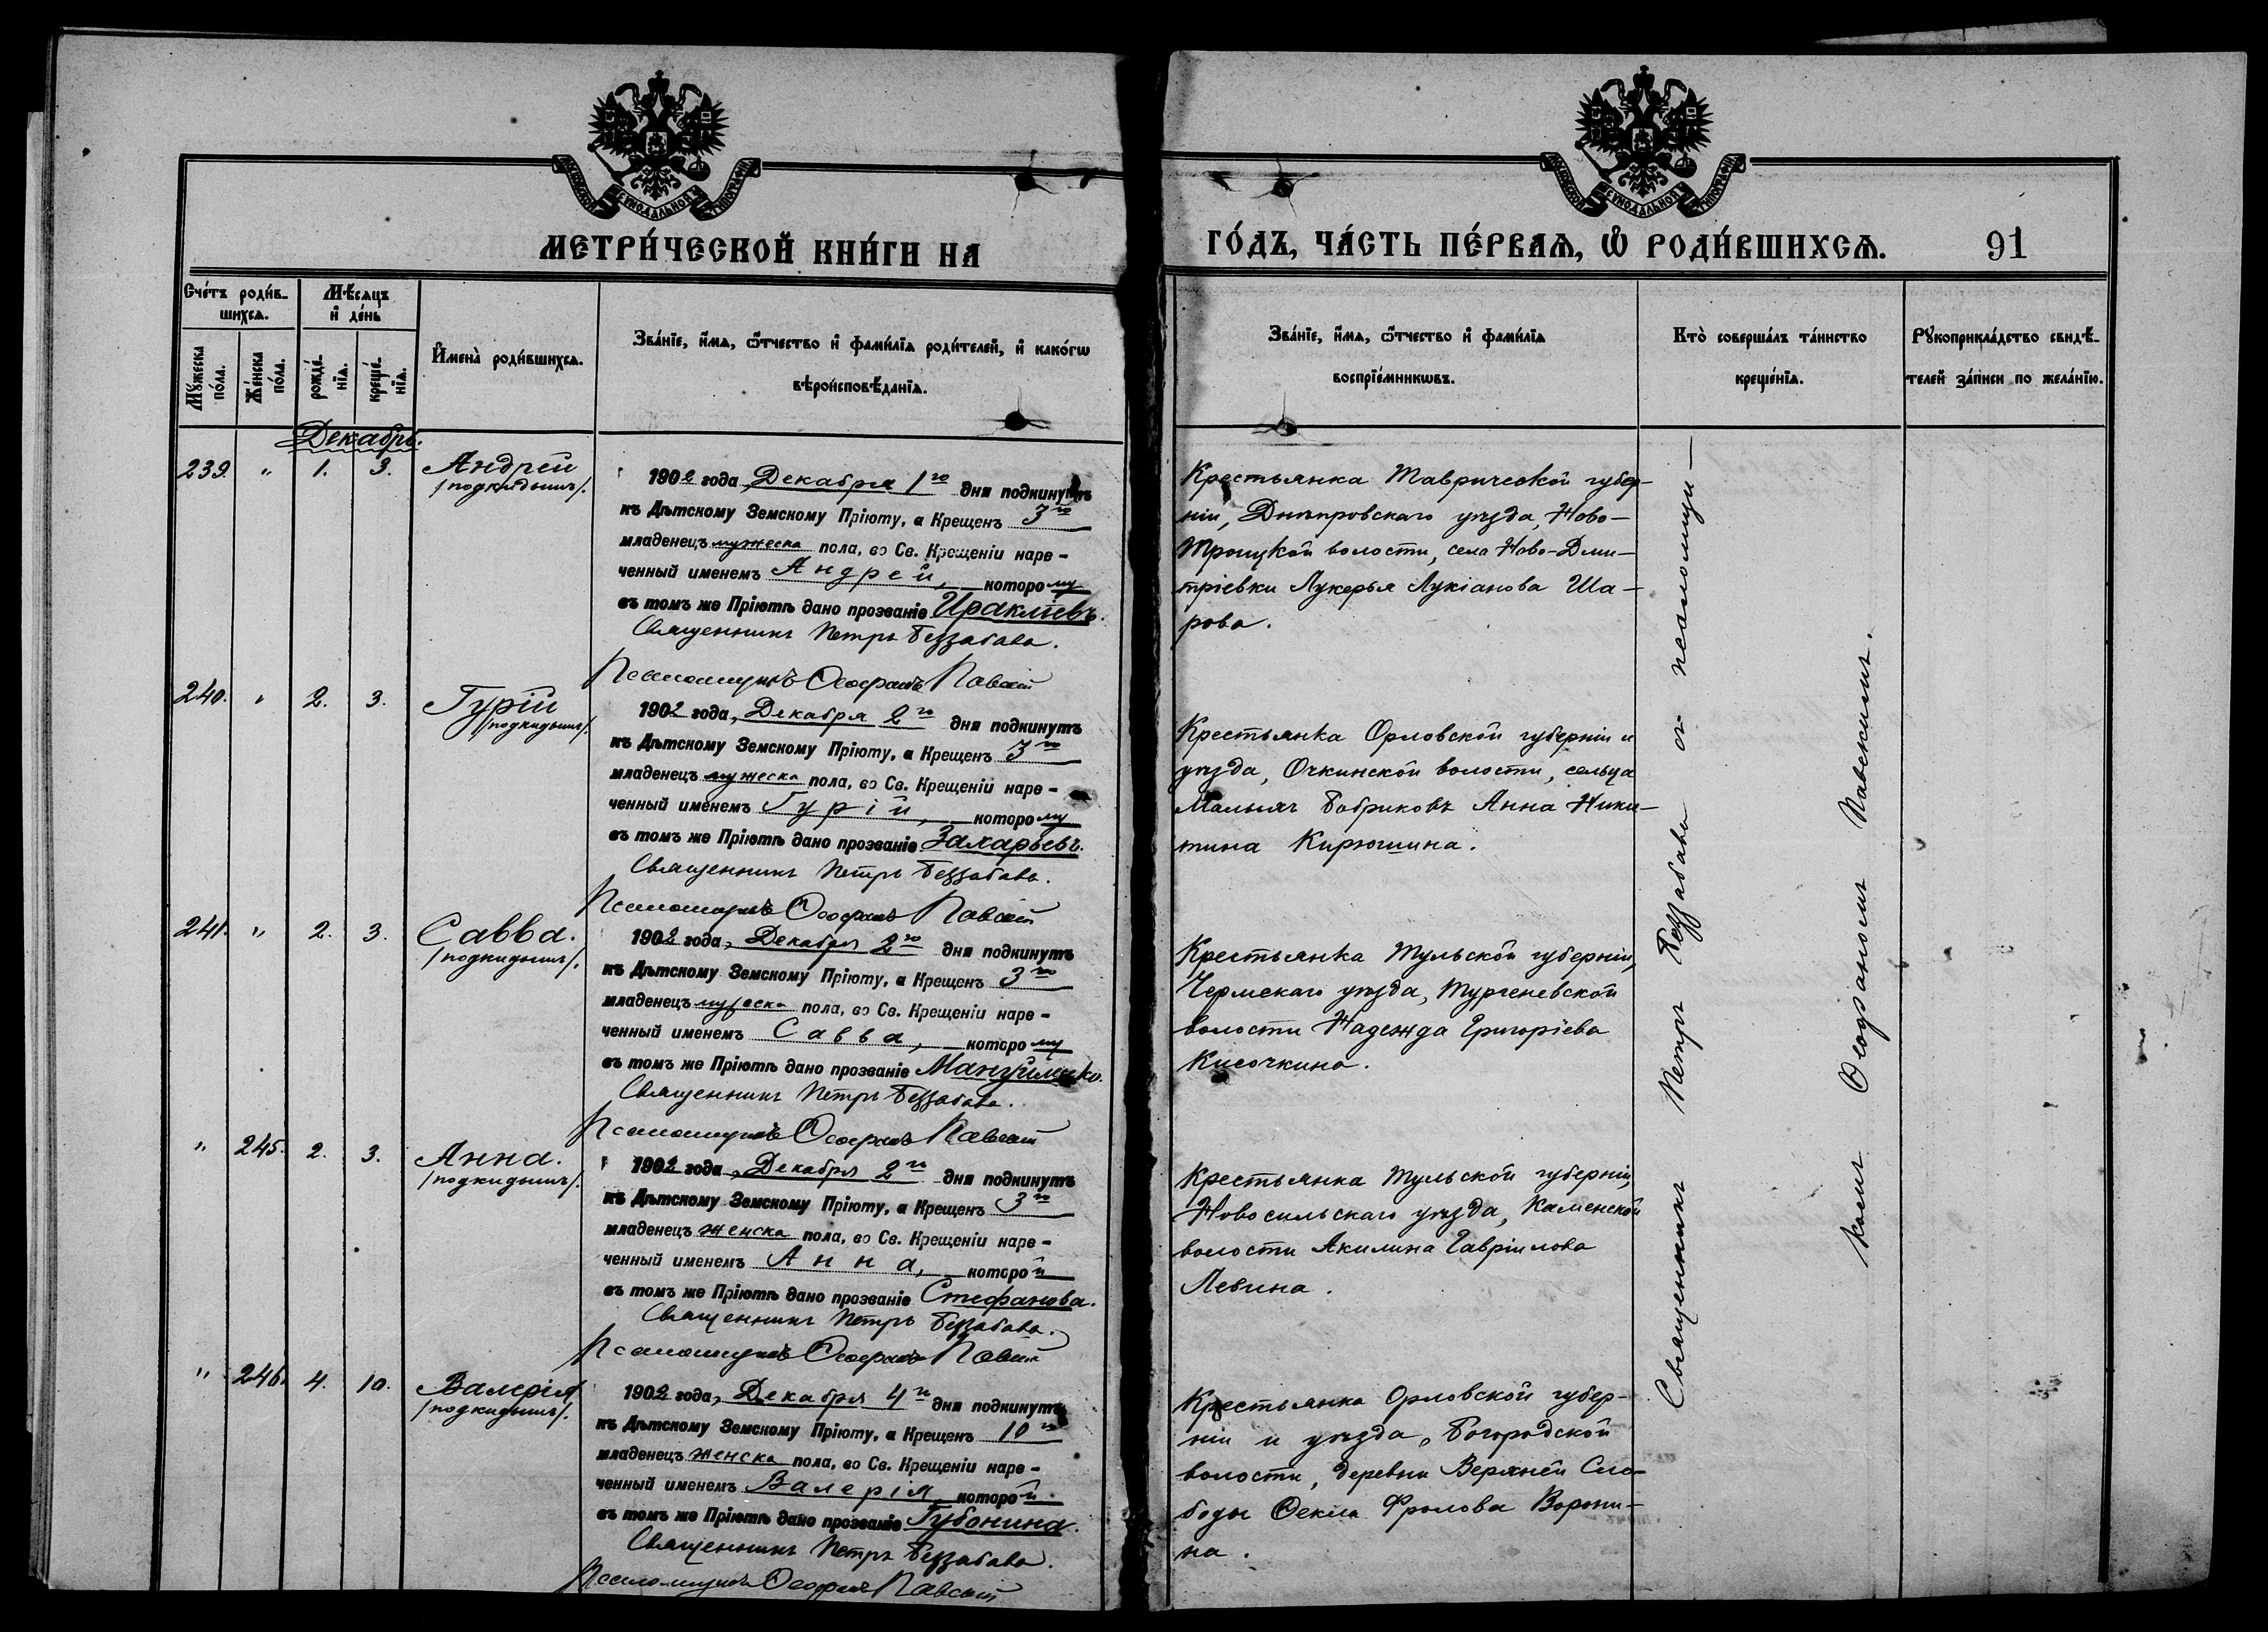 МОСКОВСКОЙ СѴНОДАЛЬНОЙ ТИПОГРАФІИ
МОСКОВСКОЙ СѴНОДАЛЬНОЙ ТИПОГРАФІИ
МЕТРИ́ЧЕСКОЙ КНИ́ГИ НА
ГО́ДЪ, ЧА́СТЬ ПЕ́РВАѦ, Ѡ҆ РОДИ́ВШИХСѦ.
91
Сче́тъ роди́в-
шихсѧ.
Мѣ́сѧцъ
и҆ де́нь
Мꙋ́жеска
по́ла.
Же́нска
по́ла.
рожде́-
нїѧ.
креще́-
нїѧ.
И҆мена̀ роди́вшихсѧ.
Зва́нїе, и҆́мѧ, ѻ҆́тчество и҆ фами́лїѧ роди́телей, и҆ како́гѡ
вѣроисповѣ́данїѧ.
Зва́нїе, и҆́мѧ, ѻ҆́тчество и҆ фами́лїѧ
воспрїе́мникѡвъ.
Кто̀ соверша́лъ та́инство
креще́нїѧ.
Рꙋкоприкла́дство свидѣ́-
телей за́писи по жела́нїю.
Декабрь.
239. " 1. 3. Андрей
/подкидышъ/.
1902 года, Декабря 1го дня подкинутъ
къ Дѣтскому Земскому Пріюту, а Крещенъ 3го
младенецъ мужеска пола, во Св. Крещеніи наре-
ченный именемъ Андрей, которому
въ томъ же Пріютѣ дано прозваніе Ираклiевъ.
Священникъ Петръ Беззабава.
Псаломщикъ Ѳеофанъ Павскій
Крестьянка Таврической губер-
ніи, Днѣпровскаго уѣзда, Ново-
Троицкой волости, села Ново-Дми-
тріевки Лукерья Лукіанова Ша-
рова.
240. " 2. 3. Гурій
/подкидышъ/.
1902 года, Декабря 2го дня подкинутъ
къ Дѣтскому Земскому Пріюту, а Крещенъ 3го
младенецъ мужеска пола, во Св. Крещеніи наре-
ченный именемъ Гурій, которому
въ томъ же Пріютѣ дано прозваніе Захарьевъ.
Священникъ Петръ Беззабава.
Псаломщикъ Ѳеофанъ Павскій
Крестьянка Орловской губерніи и
уѣзда, Очкинской волости, сельца
Малыхъ Бобриковъ Анна Ники-
тина Кирюшина.
241. " 2. 3. Савва.
/подкидышъ/.
1902 года, Декабря 2го дня подкинутъ
къ Дѣтскому Земскому Пріюту, а Крещенъ 3го
младенецъ мужеска пола, во Св. Крещеніи наре-
ченный именемъ Савва, которому
въ томъ же Пріютѣ дано прозваніе
Священникъ Петръ Беззабава.
Псаломщикъ Ѳеофанъ Павскій
Крестьянка Тульской губерніи,
Чермскаго уѣзда, Тургеневской
волости Надежда Григоріева
Кисочкина.
" 245. 2. 3. Анна.
/подкидышъ/.
1902 года, Декабря 2го дня подкинутъ
къ Дѣтскому Земскому Пріюту, а Крещенъ 3го
младенецъ женска пола, во Св. Крещеніи наре-
ченный именемъ Анна, которой
въ томъ же Пріютѣ дано прозваніе Стефанова.
Священникъ Петръ Беззабава.
Псаломщикъ Ѳеофанъ Павскій
Крестьянка Тульской губерніи,
Новосильскаго уѣзда, Каменской
волости Акилина Гавріилова
Левина.
" 246. 4. 10. Валерія
/подкидышъ/.
1902 года, Декабря 4го дня подкинутъ
къ Дѣтскому Земскому Пріюту, а Крещенъ 10го
младенецъ женска пола, во Св. Крещеніи наре-
ченный именемъ Валерія, которой
въ томъ же Пріютѣ дано прозваніе Губонина.
Священникъ Петръ Беззабава.
Псаломщикъ Ѳеофанъ Павскій
Крестьянка Орловской губер-
ніи и уѣзда, Богородской
волости, деревни Верхней Сло-
боды Ѳекла Фролова Ворони-
на.
Священникъ Петръ Беззабава съ псаломщи-
комъ Ѳеофаномъ Павскимъ.